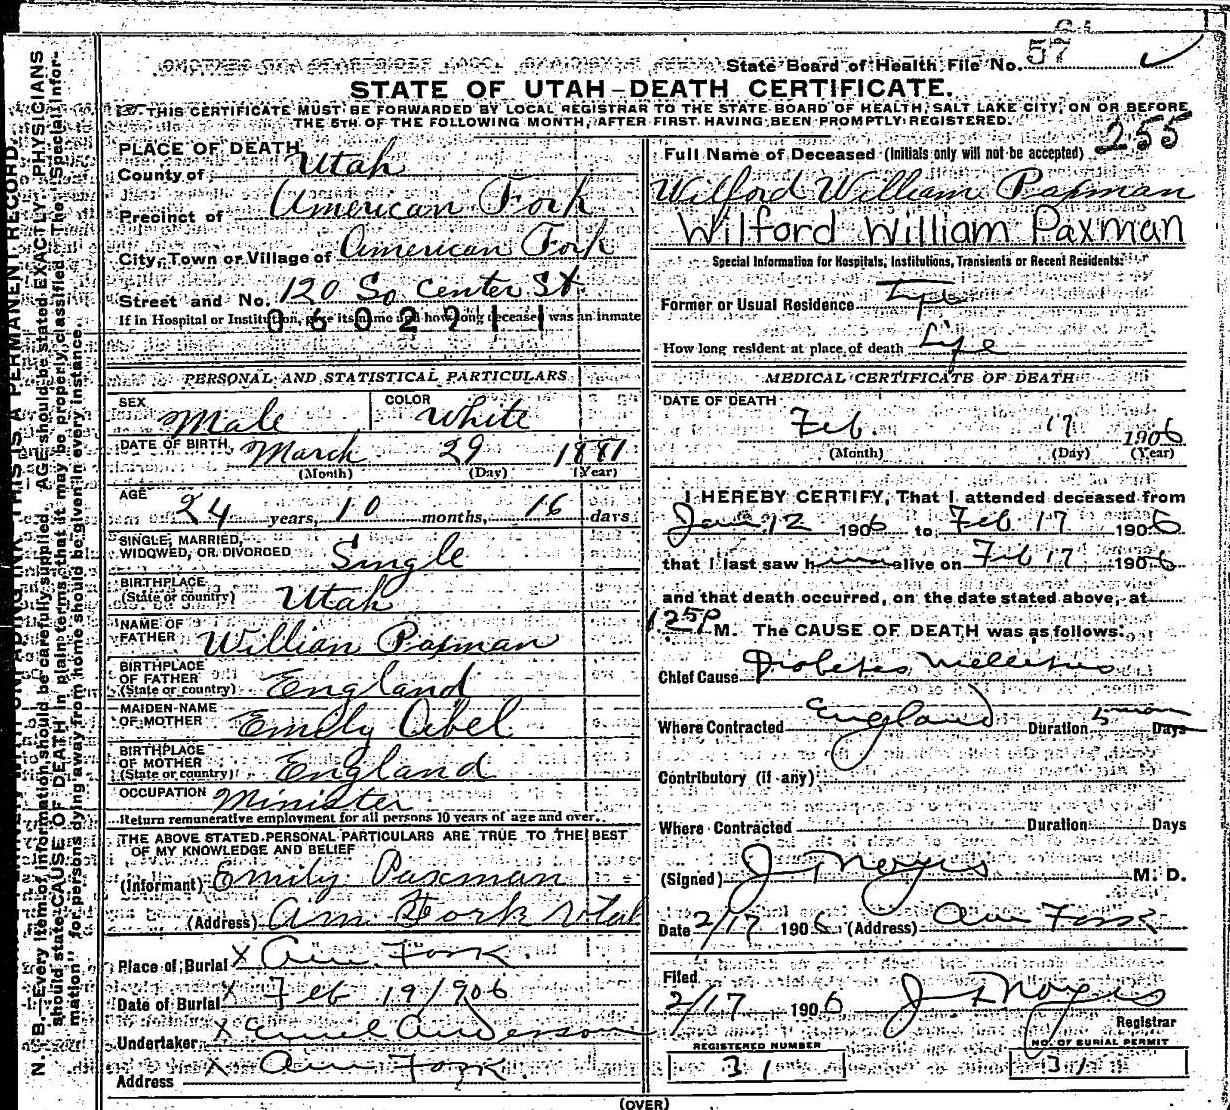 57
State Board of Health File No.
STATE OF UTAH—DEATH CERTIFICATE.
THIS CERTIFICATE MUST BE FORWARDED BY LOCAL REGISTRAR TO THE STATE BOARD OF HEALTH, SALT LAKE CITY, ON OR BEFORE
THE 5TH OF THE FOLLOWING MONTH, AFTER FIRST HAVING BEEN PROMPTLY REGISTERED.
255
PLACE OF DEATH
County of Utah
Precinct of American Fork
City, Town or Village of American Fork
Street and No. 120 So Center St.
If in Hospital or Institution, give its name and how long deceased was an inmate
0602911
PERSONAL AND STATISTICAL PARTICULARS
SEX Male COLOR White
DATE OF BIRTH March 29 1881
(Month) (Day) (Year)
AGE 24 years, 10 months, 16 days
SINGLE, MARRIED,
WIDOWED, OR DIVORCED Single
BIRTHPLACE
(State or country) Utah
NAME OF
FATHER William Paxman
BIRTHPLACE
OF FATHER
(State or country) England
MAIDEN NAME
OF MOTHER Emily Abel
BIRTHPLACE
OF MOTHER
(State or country) England
OCCUPATION Minister
Return remunerative employment for all persons 10 years of age and over.
THE ABOVE STATED PERSONAL PARTICULARS ARE TRUE TO THE BEST
OF MY KNOWLEDGE AND BELIEF
(Informant) Emily Paxman
(Address) Am Fork Utah
Place of Burial X Am. Fork.
Date of Burial X Feb 19/906
Undertaker X Emil Anderson
Address X Am Fork.
Full Name of Deceased (Initials only will not be accepted)
Wilford William Paxman
Wilford William Paxman
Special Information for Hospitals, Institutions, Transients or Recent Residents.
Former or Usual Residence Life
How long resident at place of death Life
MEDICAL CERTIFICATE OF DEATH
DATE OF DEATH
Feb. 17 1906
(Month) (Day) (Year)
I HEREBY CERTIFY, That I attended deceased from
Jan. 12 1906 to Feb 17 1906
that I last saw him alive on Feb 17 1906
and that death occurred, on the date stated above, at
125P M. The CAUSE OF DEATH was as follows:
Chief Cause Diabetes Mellitus
Where Contracted England Duration 5 mon Days
Contributory (if any)
Where Contracted Duration Days
(Signed) J F Noyes M. D.
Date 2/17 1906 (Address) Am Fork
Filed
2/17 1906 J F Noyes
Registrar
REGISTERED NUMBER
31
NO. OF BURIAL PERMIT
31
(OVER)
THIS IS A PERMANENT RECORD.
N. B.—Every item of information should be carefully supplied. AGE should be stated EXACTLY. PHYSICIANS
should state CAUSE OF DEATH in plain terms, that it may be properly classified. The "Special Infor-
mation" for persons dying away from home should be given in every instance.